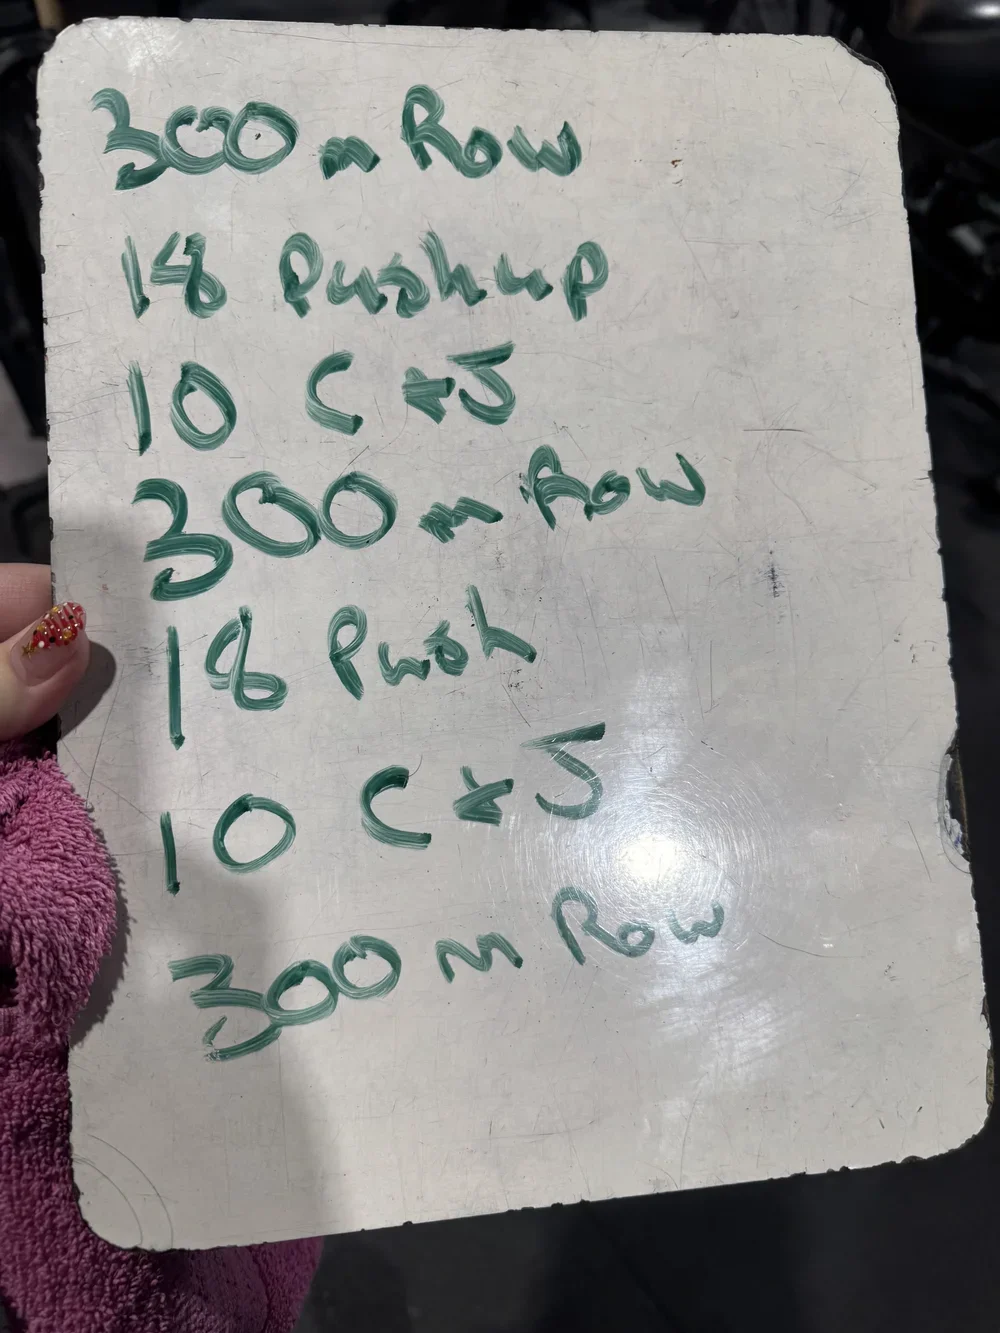 300 m Row
18 Pushup
10 C & J
300 m Row
18 Push
10 C & J
300 m Row